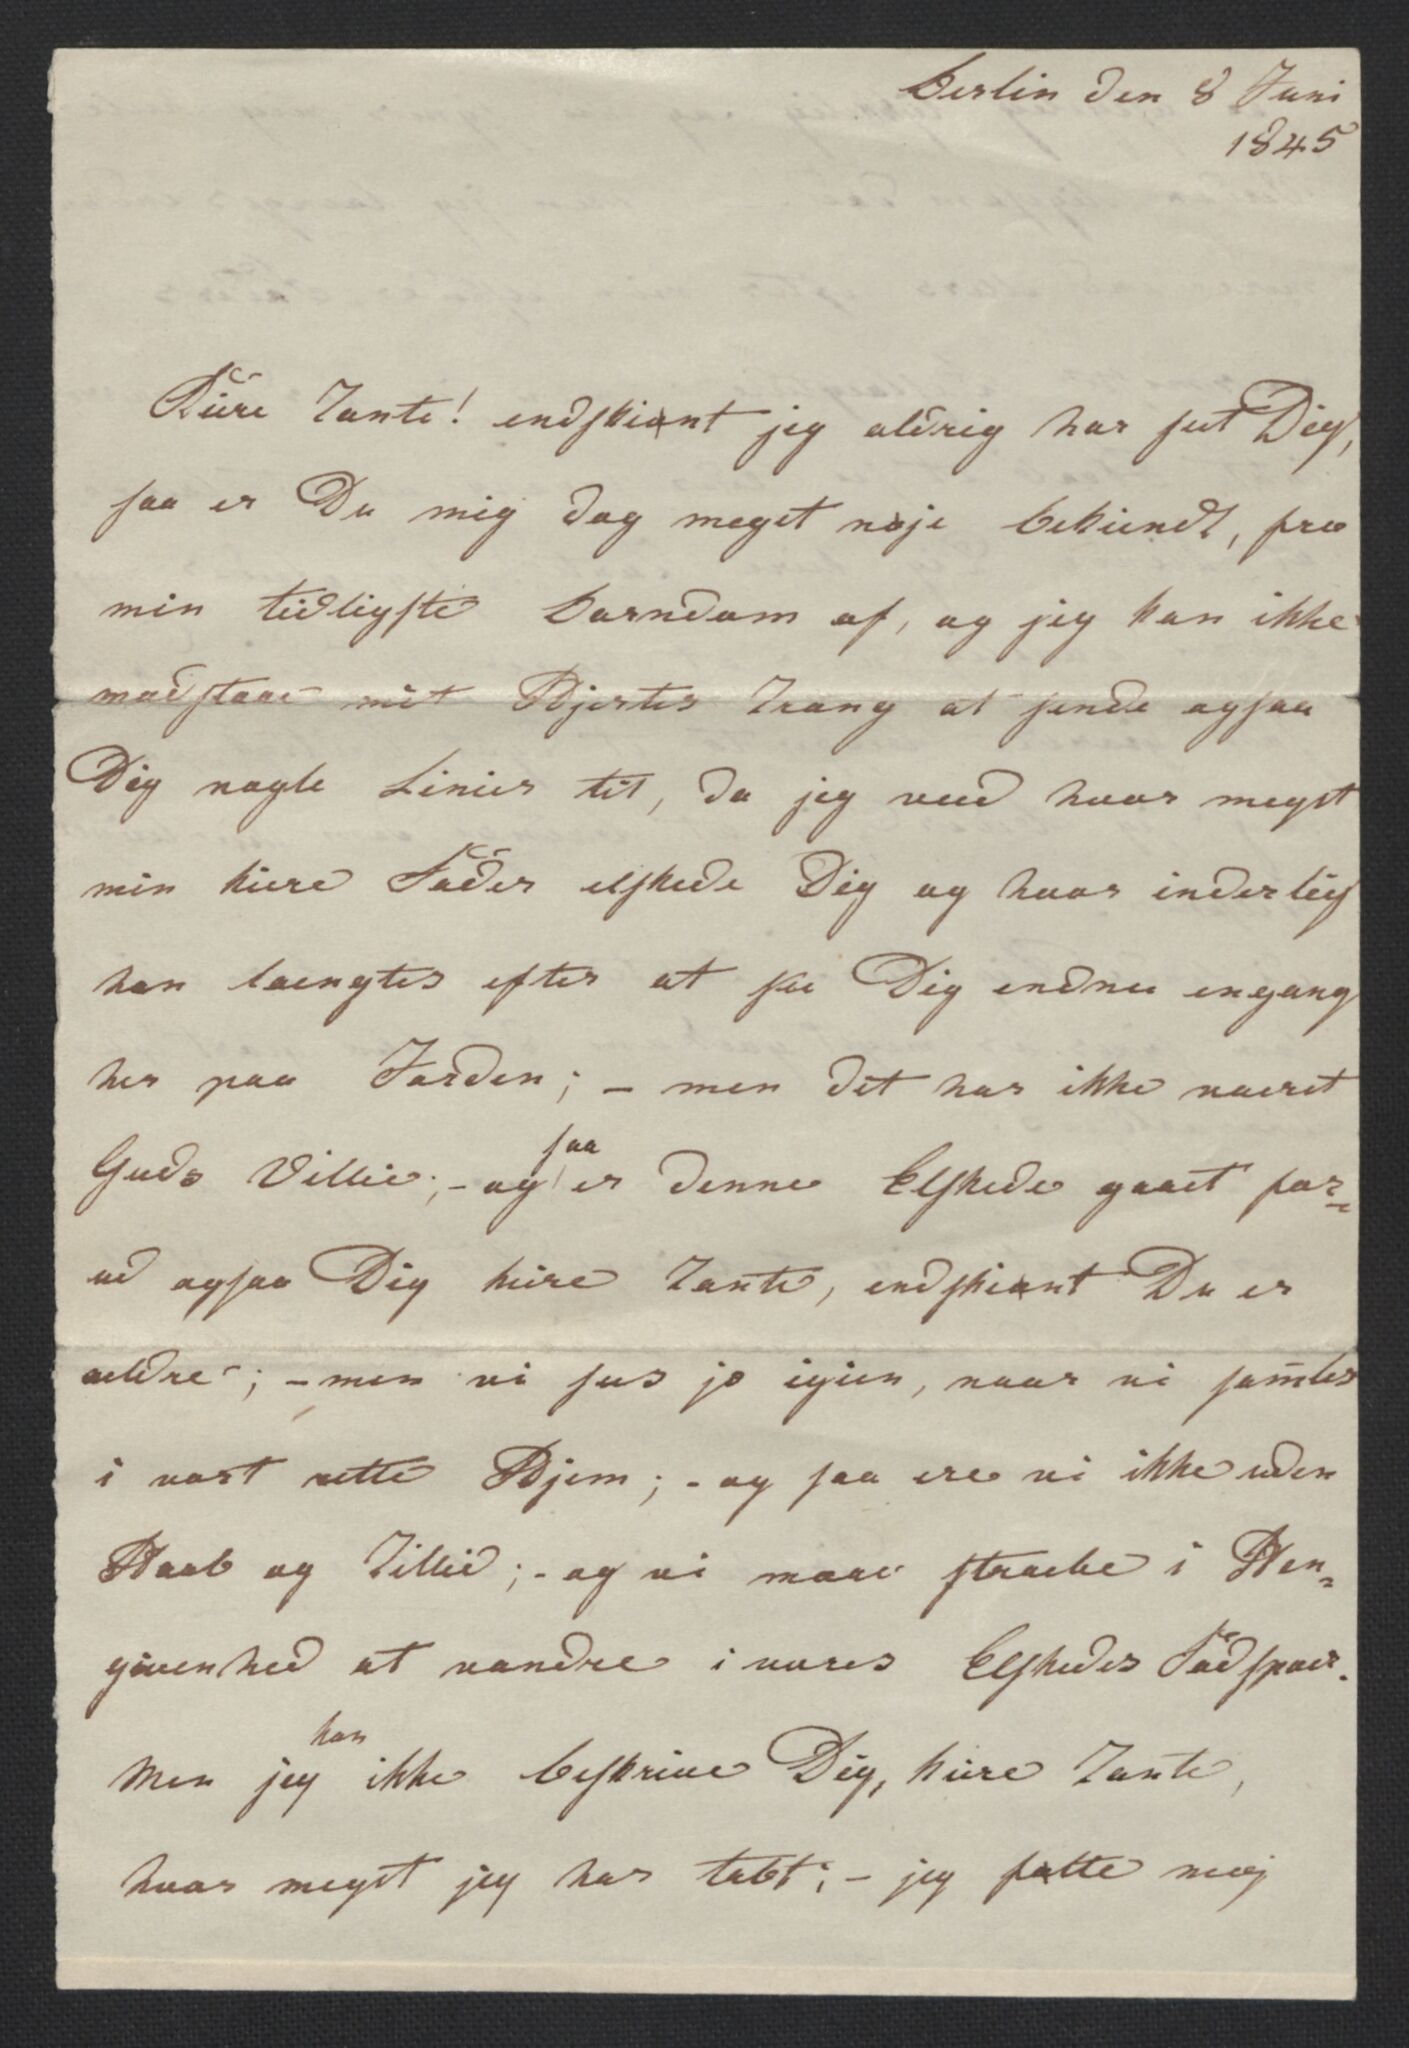 Berlin den 8 Juni
1845
Kiere Tante! endskiønt jeg aldrig har seet Dig,
saa er Du mig dog meget nøje bekiendt, fra
min tidligste Barndom af, og jeg kan ikke
modstaae mit Hjertes Trang at sende ogsaa
Dig nogle Linier til, da jeg veed hvor meget
min kiere Fader elskede Dig og hvor inderlig
han laengtes efter at see Dig endnu engang
her paa Jorden; – men det har ikke vaeret
Guds Villie; – og saa er denne Elskede gaaet for-
ud ogsaa Dig kiere Tante, endskiønt Du er
aeldre; – men vi sees jo igien, naar vi samles
i vort rette Hjem; – og saa ere vi ikke uden
Haab og Tillid; – og vi maae straebe i Hen-
givenhed at vandre i vores Elskedes Fodspoer.
Men jeg kan ikke beskrive Dig, kiere Tante,
hvor meget jeg har tabt; – jeg følte mig